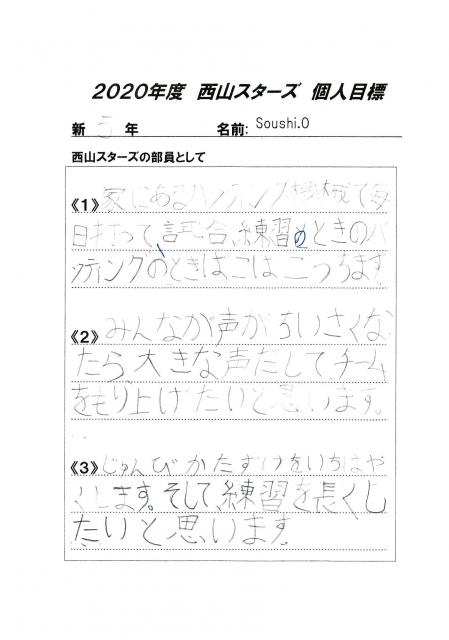 2020年度 西山スターズ 個人目標
新 5 年 名前: Soushi.O
西山スターズの部員として
《1》家にあるバッティング機械で毎
日打って、試合、練習のときのバ
ッティングのときはこは
《2》みんなが声がちいさくな
たら大きな声だして、チーム
をもり上げたいと思います。
《3》じゅんびかたずけをいちはや
くします。そして、練習を長くし
たいと思います。